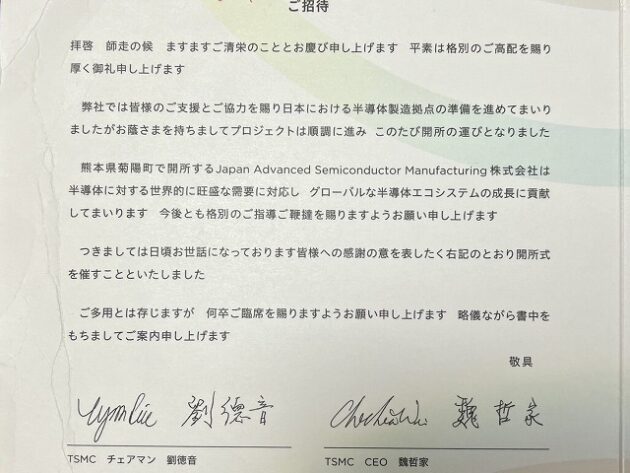 ご招待
拝啓　師走の候　ますますご清栄のこととお慶び申し上げます　平素は格別のご高配を賜り
厚く御礼申し上げます
弊社では皆様のご支援とご協力を賜り日本における半導体製造拠点の準備を進めてまいり
ましたがお蔭さまを持ちましてプロジェクトは順調に進み このたび開所の運びとなりました
熊本県菊陽町で開所するJapan Advanced Semiconductor Manufacturing 株式会社は
半導体に対する世界的に旺盛な需要に対応し　グローバルな半導体エコシステムの成長に貢献
してまいります　今後とも格別のご指導ご鞭撻を賜りますようお願い申し上げます
つきましては日頃お世話になっております皆様への感謝の意を表したく右記のとおり開所式
を催すことといたしました
ご多用とは存じますが　何卒ご臨席を賜りますようお願い申し上げます　略儀ながら書中を
もちましてご案内申し上げます
敬具
劉德音
魏哲家
TSMC　チェアマン　劉徳音
TSMC　CEO　魏哲家